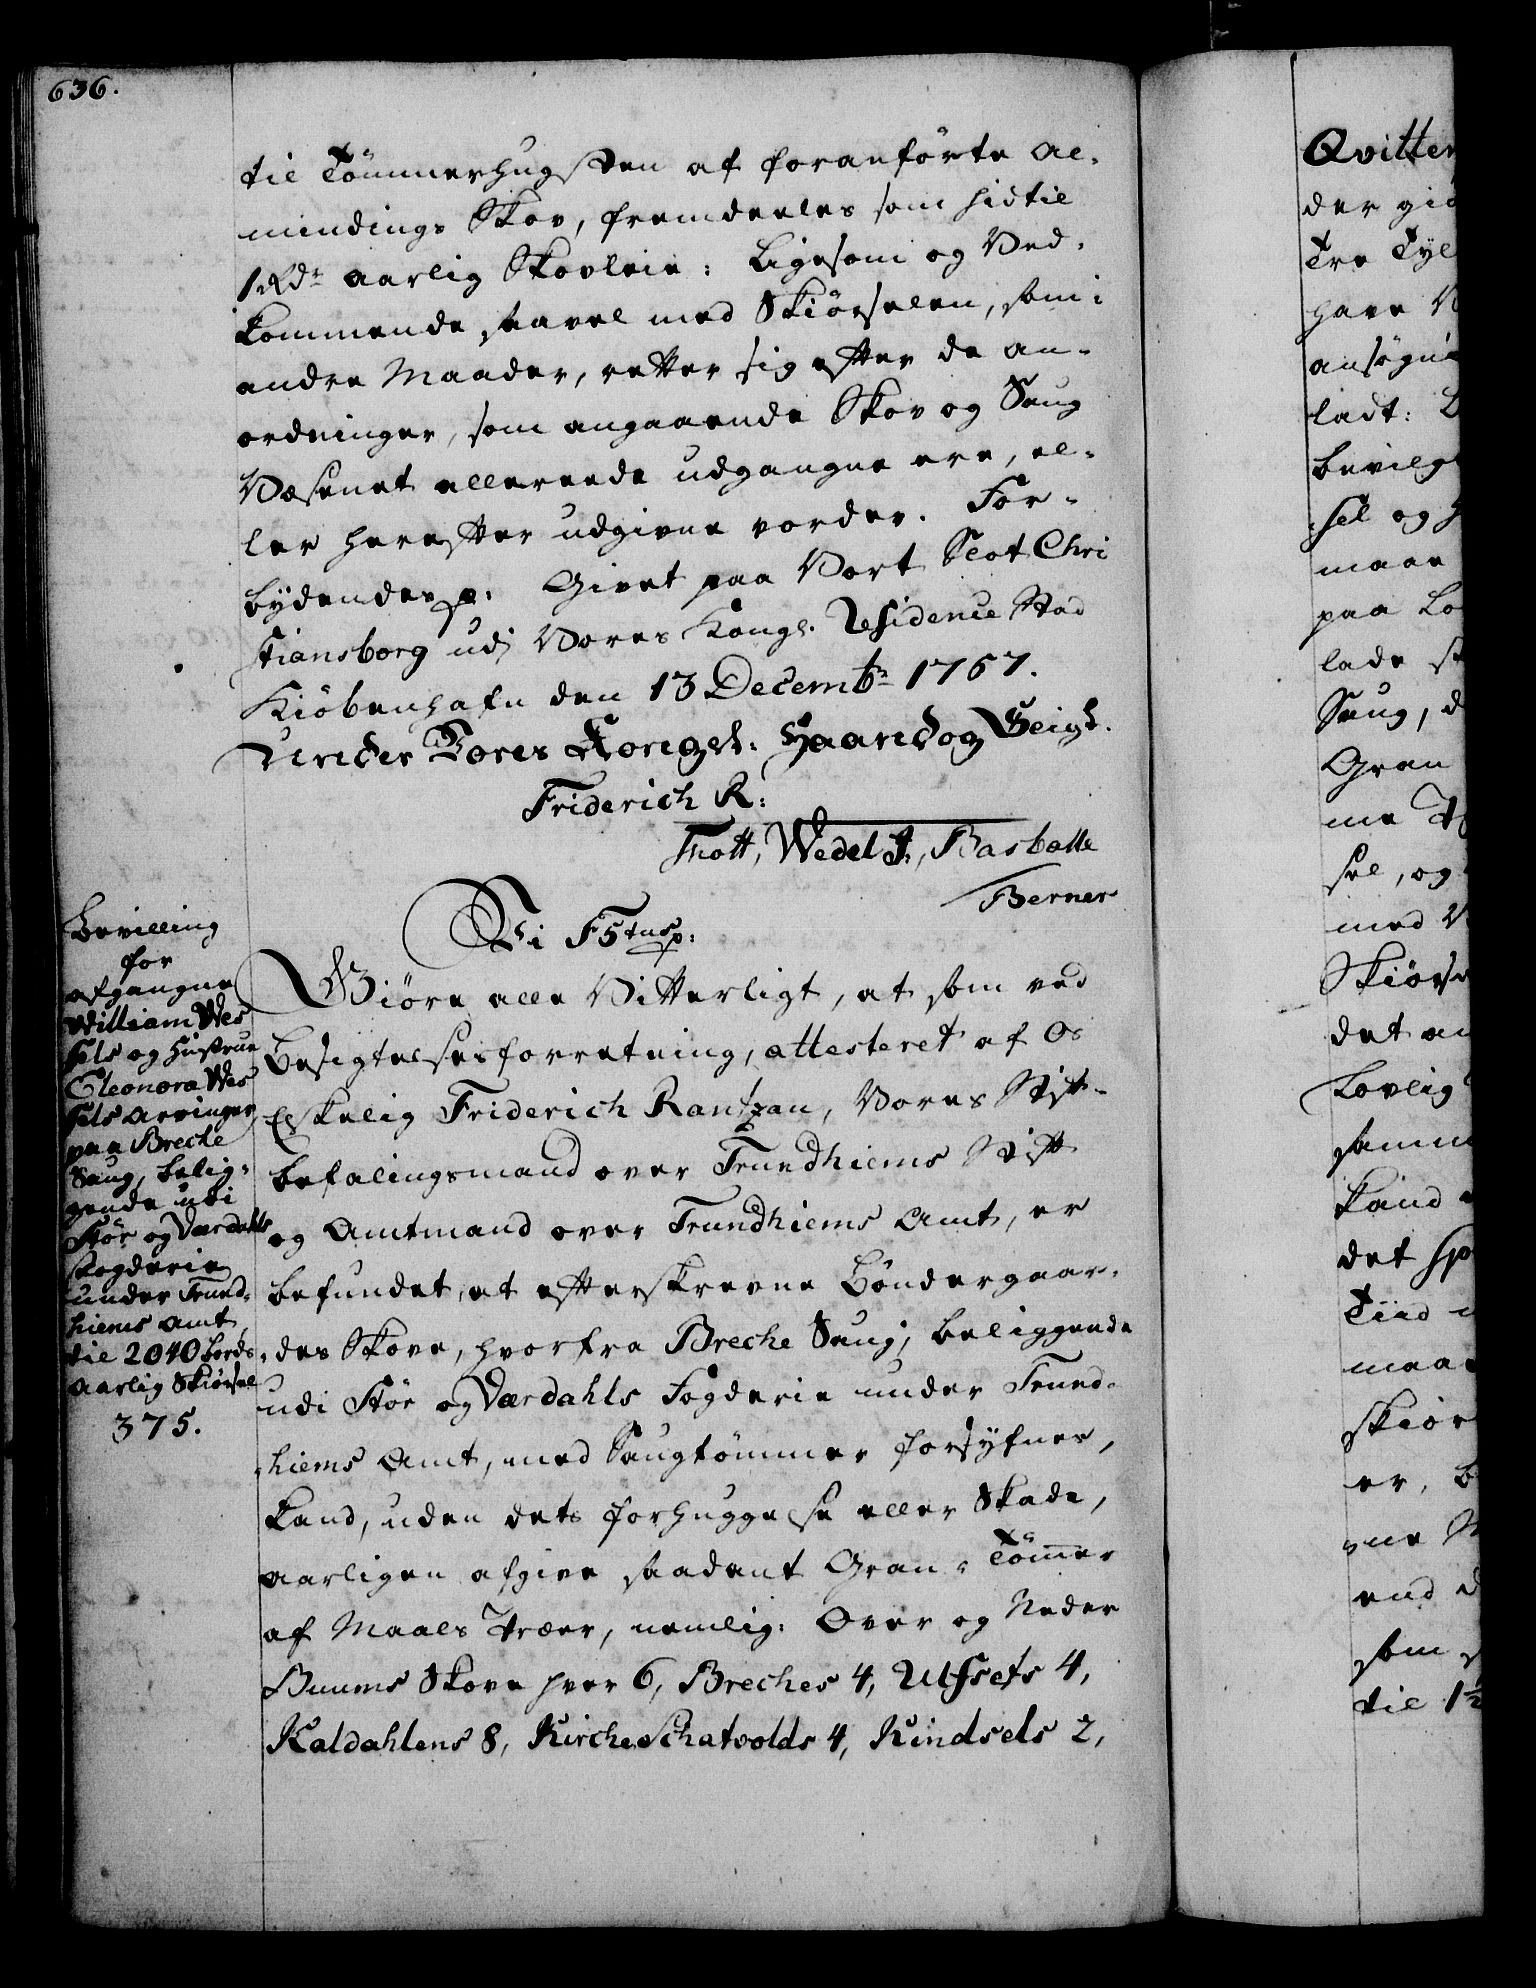 636.
til Tömmerhugsten af foranförte Al-
mindings Skov, fremdeeles som hidtil
1 Rdr aarlig Skovleie: Ligesom og Ved-
kommende saavel med Skiörselen, som i
andre Maader, retter sig efter de An-
ordninger, som angaaende Skov og Saug
Væsenet allereede udgangne ere, el-
ler herefter udgivne vorder. For-
bydendes p. Givet paa Vort Slot Chri
stiansborg udj Vores Kongl. Residence Stad
Kiöbenhafn den 13 Decembr 1757.
Under Vores Kongel: Haand og Seigl.
Friderich R:
Thott, Wedel F., Barballe
Berner
Bevilling
for
afgangne
William Wes
sels og Hustrue
Eleonora Wes
sels Arvinger
paa Breche
Saug, belig-
gende udi
Stör og Værdahls
Fogderie
under Trund-
hiems Amt,
til 2040 bords
aarlig Skiörsel
375.
Vi F5tus p:
Giöre alle Vitterligt, at som ved
Besigtelsesforretning, attesteret af Os
Elskelig Friderich Rantzau, Vores Stift-
befalingsmand over Trundhiems Stift
og Amtmand over Trundhiems Amt, er
befundet, at efterskrevne Böndergaar-
des Skove, hvorfra Breche Saug, beliggende
udi Stör og Værdahls Fogderie under Trund-
hiems Amt, med Saugtömmer forsÿnes,
kand, uden dets forhuggelse eller Skade,
aarligen afgive saadant Gran-Tömer
af Maals Træer, nemlig: Over og Neder
Buums Skove hver 6, Breches 4, Ulfsets 4,
Kaldahlens 8, Kirche Schatvolds 4, Kindsels 2,
Qvitter
der gi
Tre Tyl
have V
ansögni
ladt: B
bevilg
sel og
maae
paa Lo
lade
Saug, d
Gran
me
sel, og
med V
Skiörs
det
Lovlig
samm
kand
det Sp
Tiid
maa
skiör
er, B
vne
end
som
til 1½